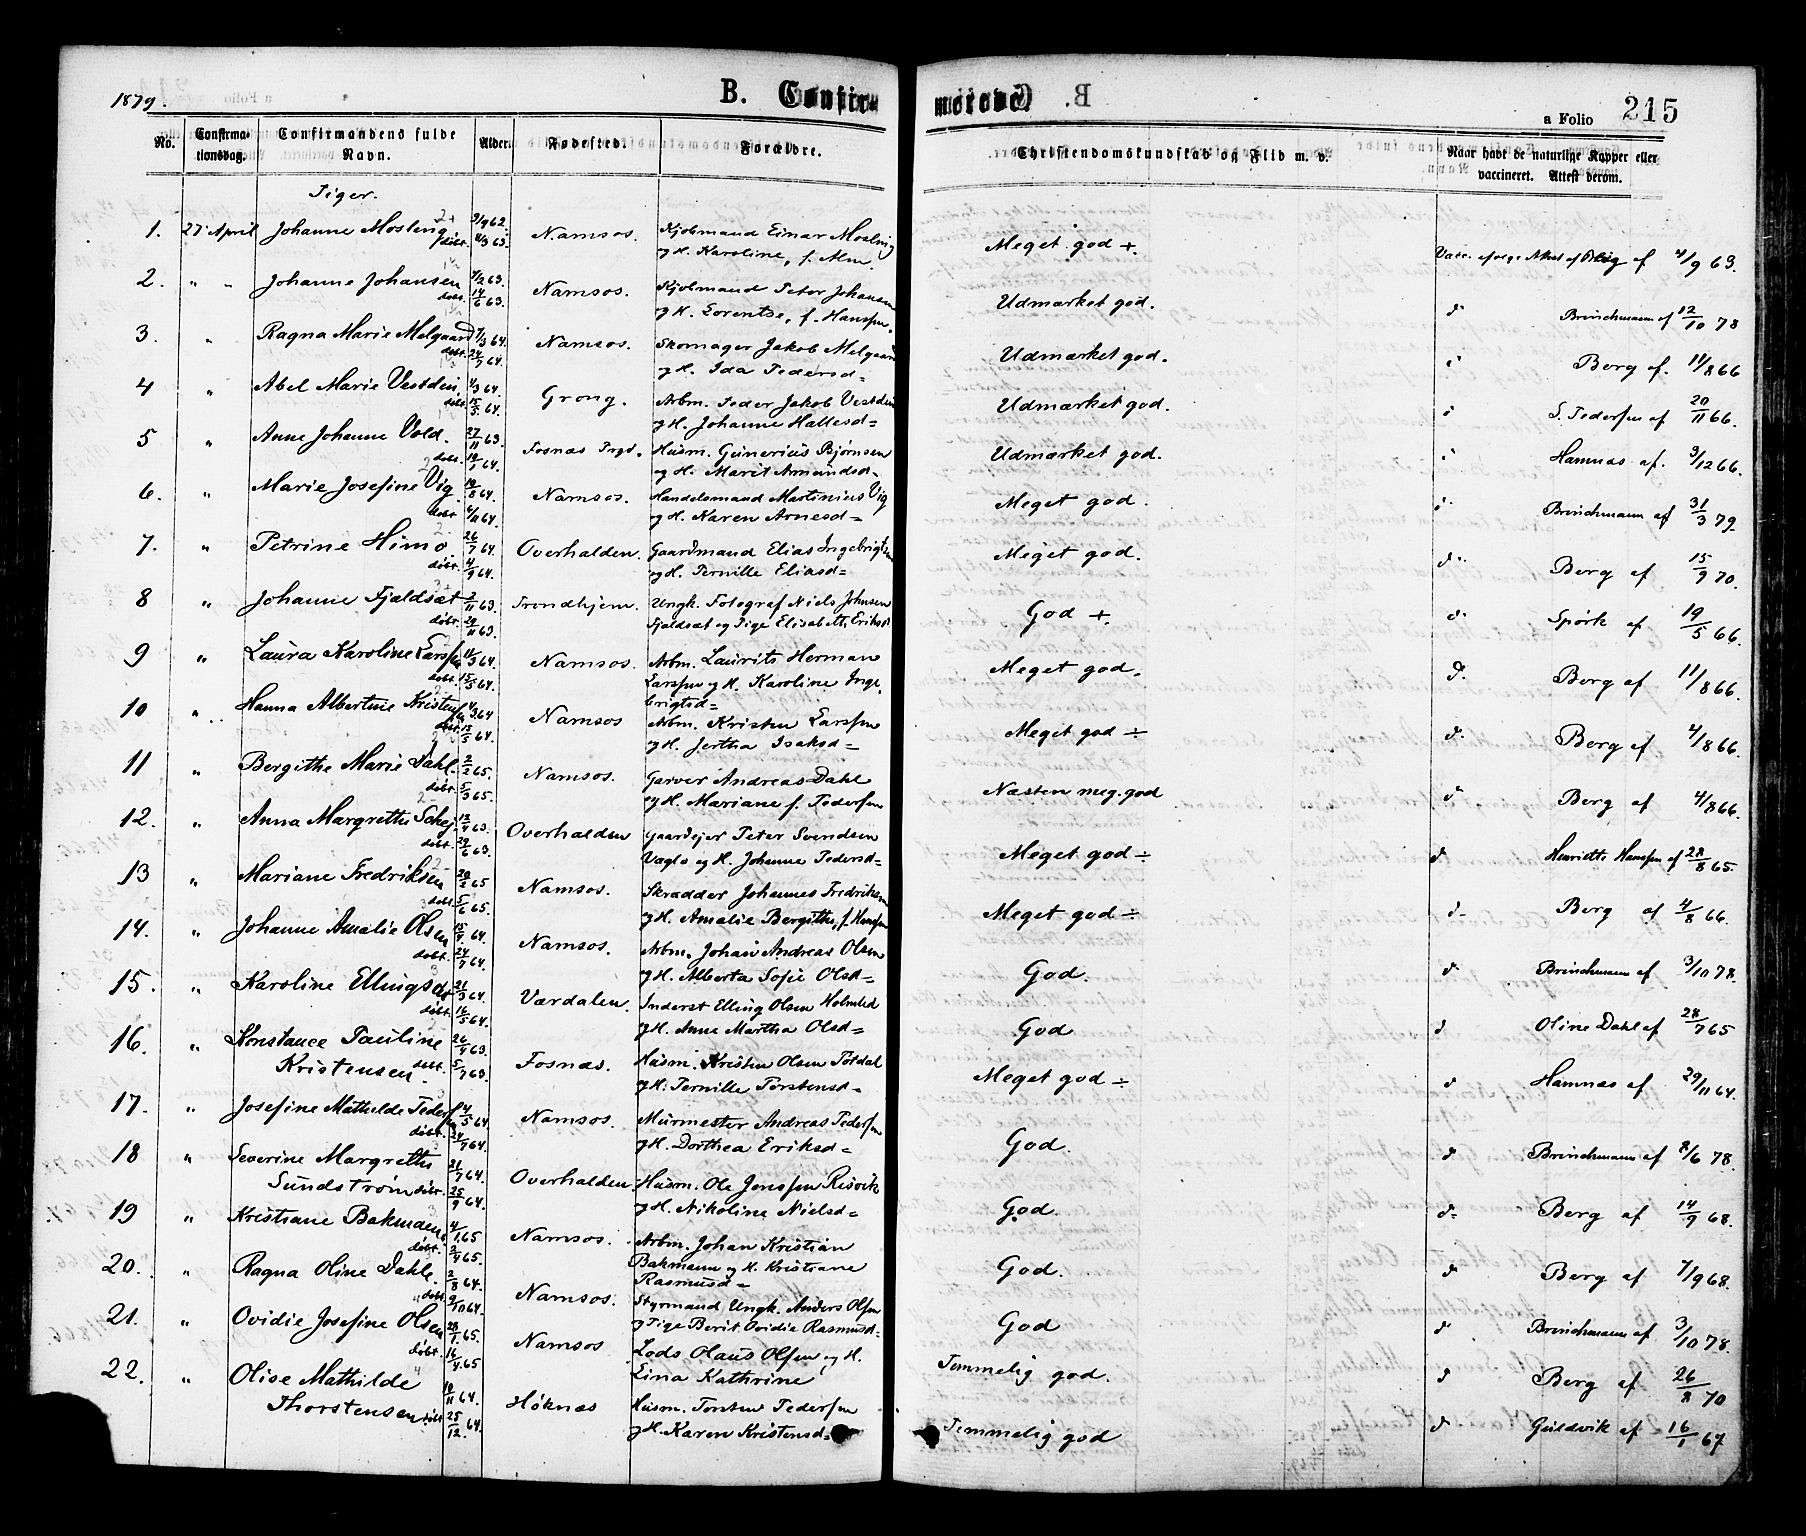 1879.
B. Confirmerede.
a Folio 215
No. Confirmationsdag. Confirmandens fulde Navn. Alder. Fødested. Forældre. Christendomskundskab og Flid m. v. Naar havt de naturlige Kopper eller vaccineret. Attest derom.
Piger.
1. 27 April Johanne Mosling 9/9 62. døbt. 4/3 63. Namsos. Kjøbmand Einar Mosling og H. Karoline, f. Alm. Meget god + 4/9 63.
2. " " Johanne Johansen 4/2 63. døbt. 14/6 63. Namsos. Kjøbmand Peter Johansen og H. Lorentse, f. Hanssen. Udmærket god. d Brinchmann af 12/10 78
3. " Ragna Marie Melgaard 7/3 64. døbt. 24/7 64. Namsos. Skomager Jakob Melgaard og H. Ida Pedersd= Udmærket god. Berg af. 11/8 66
4 " Abel Marie Vestdin 4/3 64. døbt. 15/5 64. Grong. Arbm. Peder Jakob Vestdin og H. Johanne Hallesd= Udmærket god. S. Pedersen af 20/11 66.
5 " Anne Johanne Vold. 27/11 63. døbt. 19/1 64. Fosnæs Prgd. Husm. Gunerius Bjørnsen og H. Marit Amundsd= Udmærket god. Hamnæs af. 3/12 66.
6. " Marie Josefine Vig 19/8 64. døbt 6/11 64. Namsos. Handelsmand Martinius Vig og H. Karen Arnesd= Meget god. Brinchmann af 31/3 79.
7. " Petrine Himo 26/7 64. døbt. 4/9 64. Overhalden. Gaardmand Elias Ingebrigtsen og H. Pernille Eliasd= Meget god. d Berg af 15/9 70.
8 " Johanne Fjældsæt 2/11 63. døbt. 29/11 63. Trondhjem. Ungk. Fotograf Niels Johnsen Fjeldsæt og Pige Elisabeth Eriksd God +. d Spørk af 19/5 66.
9 " Laura Karoline Larssen 11/3 64. døbt. 15/5 64. Namsos. Arbm. Laurits Herman Larssen og H. Karoline Ingebrigtsd= Meget god. d. Berg af 11/8 66.
10 " Hanna Albertine Kristensen 4/3 64 døbt. 15/5 64. Namsos Arbm. Kristen Larssen og H. Jertha Isaksd= Meget god ÷ d. Berg af 4/8 66.
11 " Bergithe Marie Dahl. 2/2 65. døbt. 5/3 65. Namsos. Garver Andreas Dahl og H. Mariane f. Pedersen Næsten meg. god d Berg af 4/8 66.
12. " Anna Margrethe 12/4 63. døbt. 29/6 63. Overhalden Gaardejer Peter Svendsen og H. Johanne Pedersd= Meget god ÷ d Henriette Hanssen af 28/8 65.
13 " Mariane Fredriksen 20/2 65 døbt. 5/6 65. Namsos. Skrædder Johannes Fredriksen og H. Amalie Bergithe, f. Hanssen Meget god ÷ d. Berg af 4/8 66.
14. " Johanne Amalie Olsen 15/4 64. døbt. 24/7 64. Namsos. Arbm. Johan Andreas Olsen og H. Alberta Sofie Olsd= God. d Brinchmann af 3/10 78.
15. " Karoline Ellingsd 21/3 64. døbt. 16/5 64. Værdalen. Inderst Elling Olsen Holmlid og H. Anne Martha Olsd= God d Oline Dahl af 28/7 65
16. " Konstance Pauline Kristensen 26/4 63. døbt. 5/7 63. Fosnæs. Husm. Kristen Olsen Tøtdal og H. Pernille Torstensd= Meget god ÷ d Hamnæs af 29/11 64.
17. " Josefine Mathilde Pedersen 4/5 64 døbt. 24/7 64. Namsos. Murmester Andreas Pedersen og H. Dorthea Eriksd= God. d Brinchmann af 8/6 78.
18 " Severine Margrethe Sundstrøm 21/7 64. døbt. 25/9 64. Overhalden. Husm. Ole Jenssen Risvik og H. Nikoline Nielsd= God. d= Berg af 14/9 68.
19 " Kristiane Bakmann 4/1 65 døbt. 2/4 65. Namsos. Arbm. Johan Kristian Bakmann og H. Kristiane Rasmusd= God. d Berg af 7/9 68.
20. " Ragna Oline Dahle. 2/8 64. døbt. 9/10 64. Namsos. Styrmand Ungk. Anders Olsen og Pige Berit Ovidie Rasmusd= God d Brinchmann af 3/10 78.
21. " Ovidie Josefine Olsen 28/1 65. døbt. 16/4 65 Namsos Lods Olaus Olsen og H. Lina Kathrine Temmelig god. d Berg af 26/8 70
22. " Olise Mathilde Thorstensen 10/11 64. døbt 25/12. 64. Høknæs Husm. Torsten Pedersen og H. Karen Kristensd= Temmelig god d Guldvik af 16/1 67